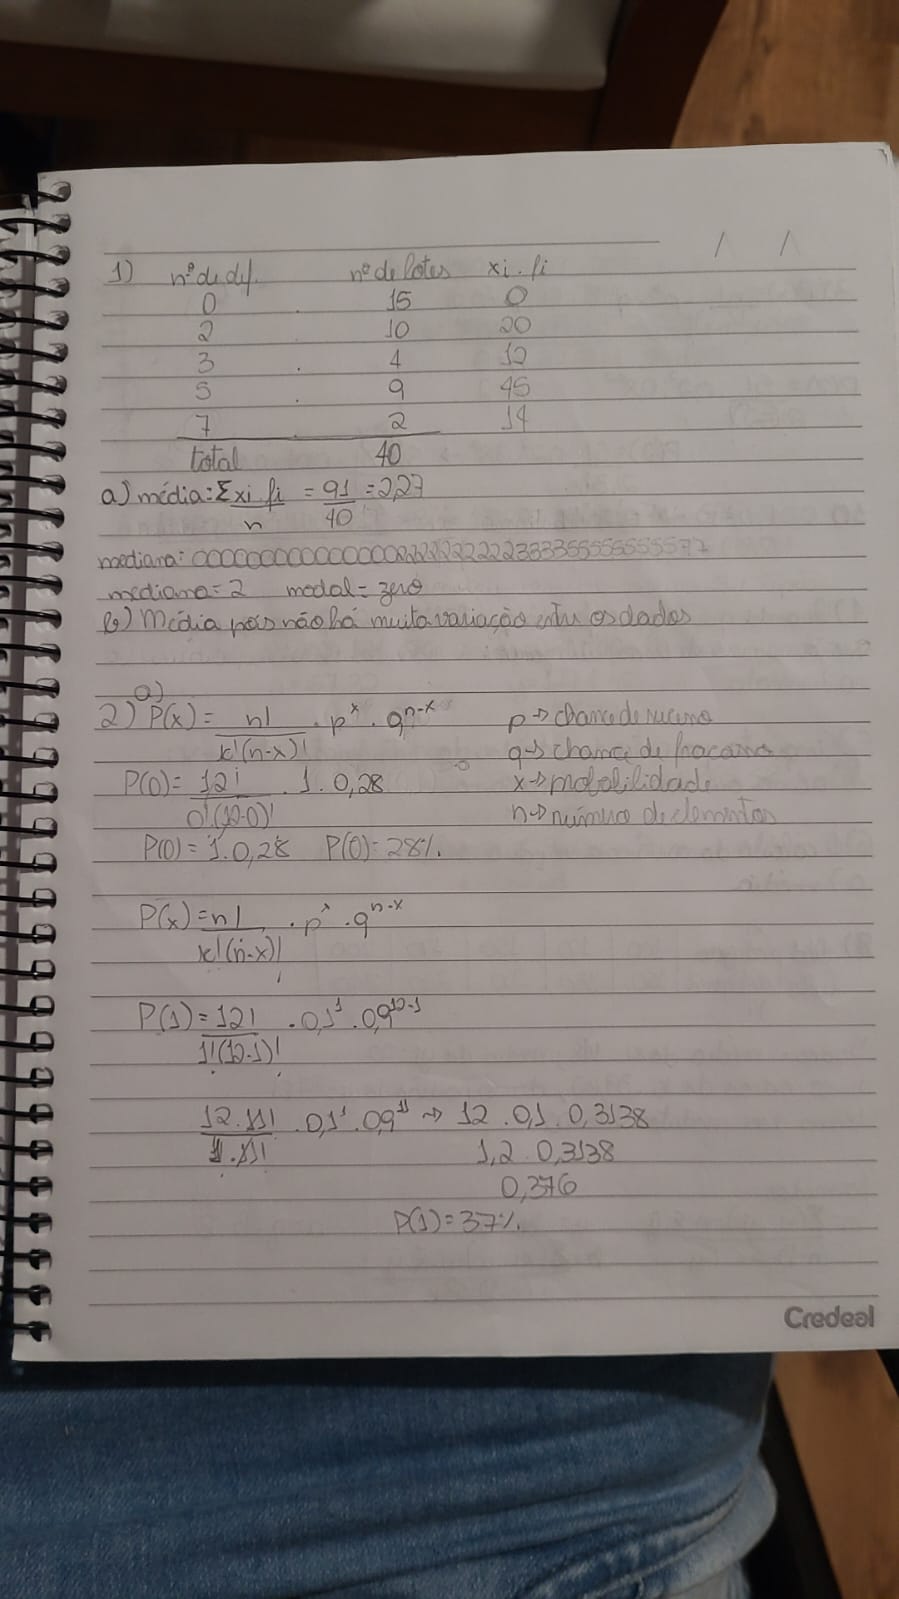 / /
1) nº de def. nº de lotes xi.fi
0 15 0
2 10 20
3 4 12
5 9 45
7 2 14
total 40
a) média: Σxi.fi/n = 91/40 = 2,27
mediana: 0000000000000002222222222333355555555577
mediana = 2 modal = zero
b) Média pois não há muita variação entre os dados
a)
2) P(x) = n!/k!(n-x)! . p^x . q^n-x p → chance de sucesso
q → chance de fracasso
P(0) = 12!/0!(12-0)! . 1 . 0,28 x → probabilidade
n → número de elementos
P(0) = 1.0,28 P(0) = 28%.
P(x) = n!/k!(n-x)! . p^x . q^n-x
P(1) = 12!/1!(12-1)! . 0,1^1 . 0,9^12-1
12.11!/1.11! . 0,1^1 . 0,9^11 → 12 . 0,1 . 0,3138
1,2 . 0,3138
0,376
P(1) = 37%.
Credeal